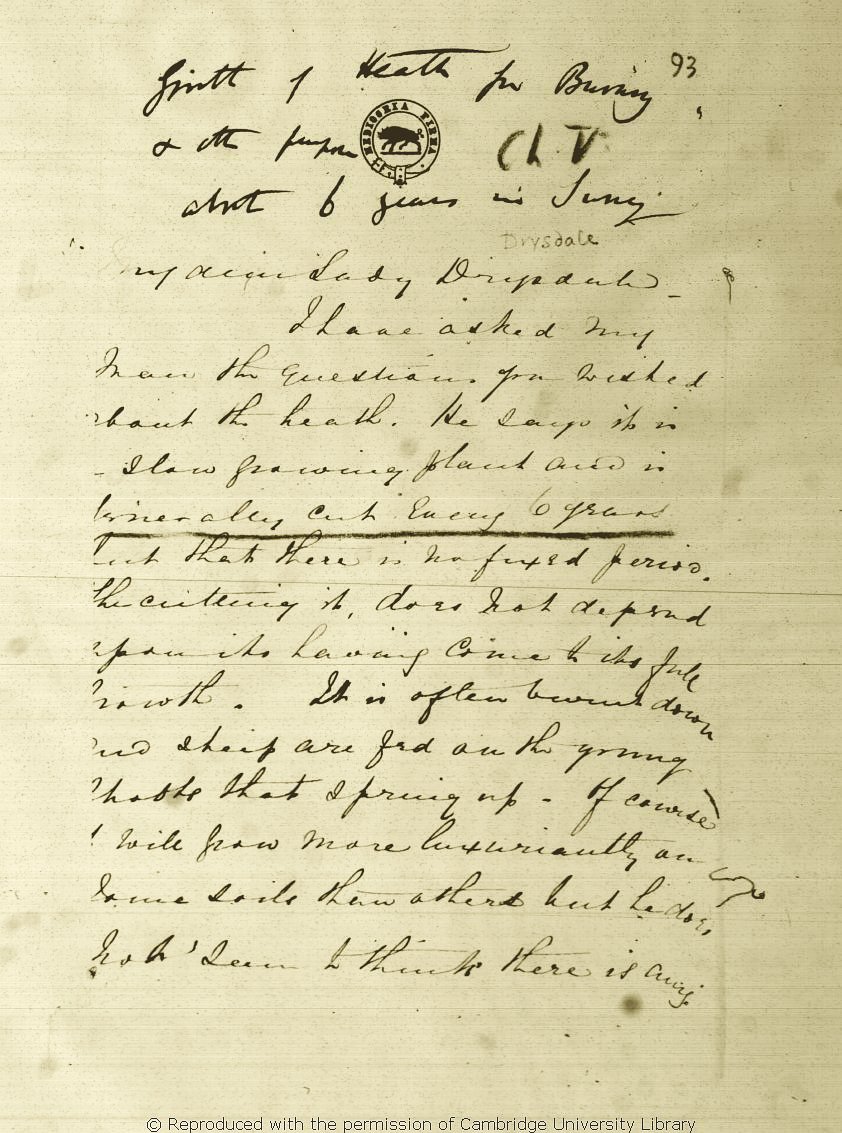 Growth of Heath for Burning
93
& other purposes
MEDIOCRIA FIRMA
Ch V
about 6 years in Surrey
Drysdale
My dear Lady Drysdale
I have asked my
Man the questions you wished
about the heath. He says it is
a slow growing plant and is
generally cut every 6 years
but that there is no fixed period.
The cutting it, does not depend
upon its having come to its full
growth. It is often burnt down
and sheep are fed on the young
shoots that spring up - Of course
it will grow more luxuriantly on
some soils than others but he does
not seem to think there is any
© Reproduced with the permission of Cambridge University Library